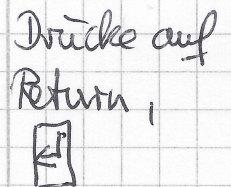 Drücke auf
Return,
↵